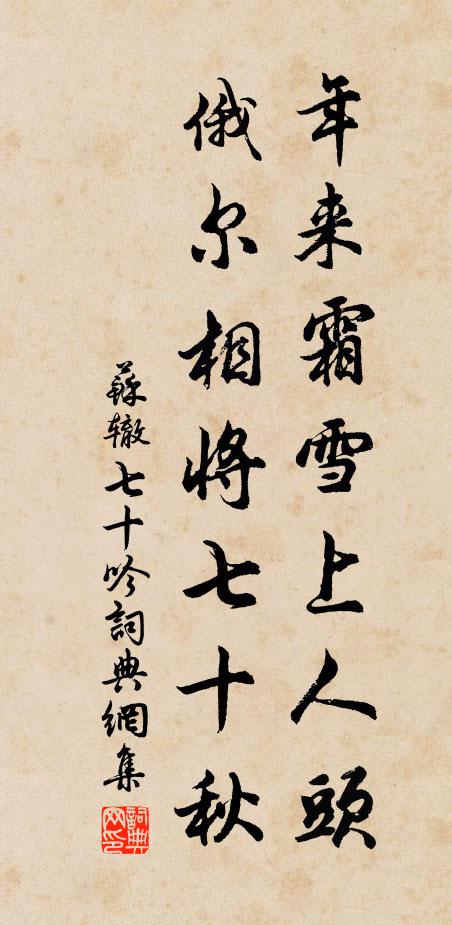 年来霜雪上人頭
俄尔相将七十秋
蘇辙七十吟詞典網集
詞典
网印